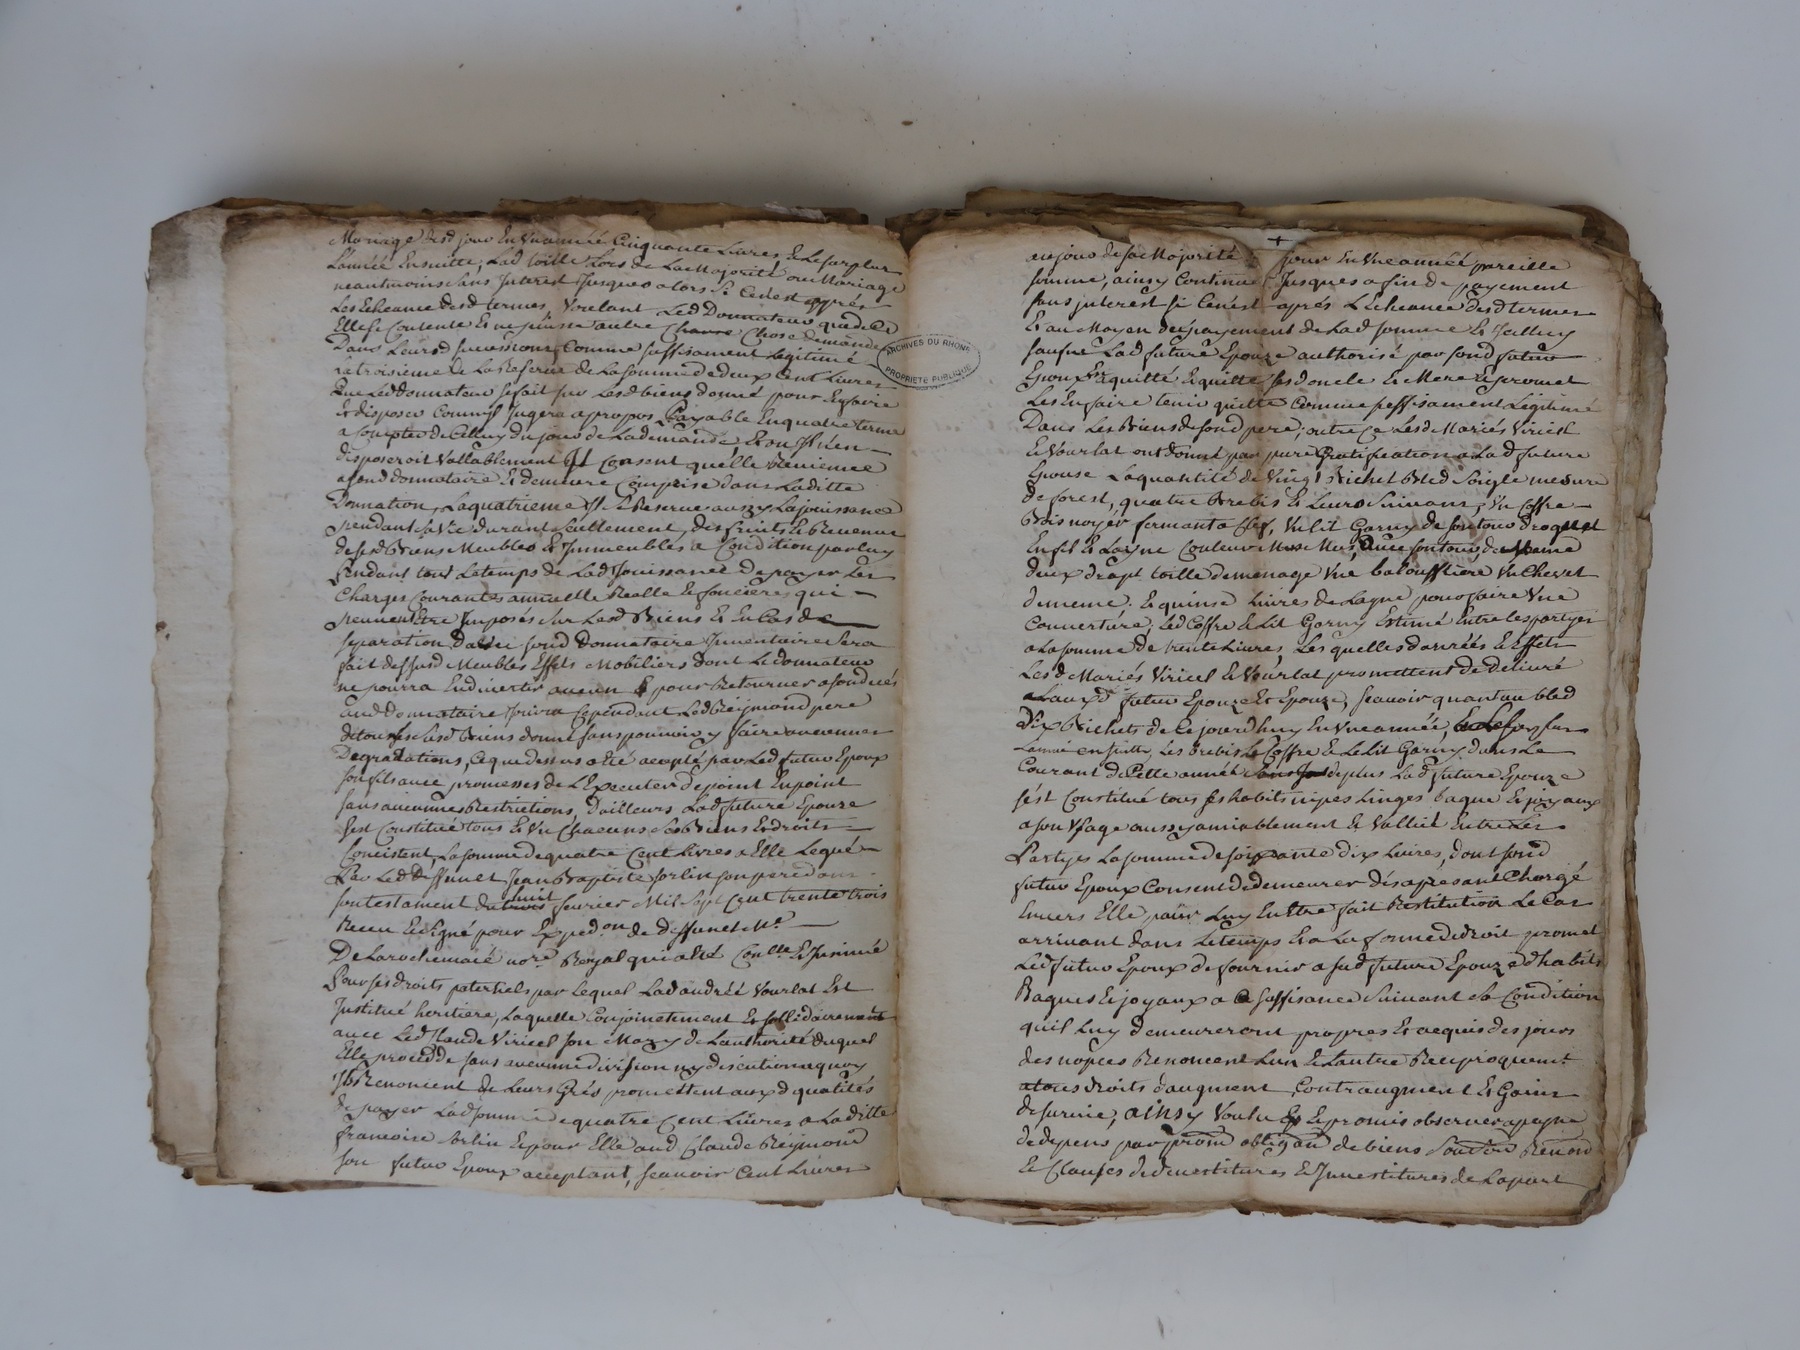 Mariage desd jour En Une année Cinquante Livres, & Le surplus
L'année Ensuitte, Lad toille Lors de La Majorité ou Mariage
neantmoins sans Interest Jusques alors Si Cenest apprés
Les Echeance desd termes, Voulant Led Donnateur que
Elle se Contente Et ne puisse autre Chose demander
Dans Leursd successions Comme suffisament Legitimé
La troisieme De La Reserve de La somme de deux Cent Livres
Que Led donnateur se fait sur Lesd biens donné pour En faire
Et disposer Comm'il Jugera apropos, Payable En quatre terme
a Compter de Celluy du jour de La demande Et ou Il n'en
disposeroit Vallablement Il Consent qu'elle Revienne
asond donnataire Et demeure Comprise dans Laditte
Donnation, La quatrieme Il Se Reserve aussy La jouissance
pendant sa Vie durant seullement, des fruits & Revenus
de sesd Biens Meubles Et Immeubles a Condition par luy
pendant tout Le temps de Lad Jouissance de payer Les
Charges Courantes annuelle Realle & foncieres qui
peuvent Etre Imposés sur Lesd Biens Et En Cas de
separation D'avec sond Donnataire Inventaire Sera
fait des susd Meubles Effets Mobiliers dont Le donnateur
ne pourra En divertir aucun & pour Retourner a son deces
aud Donnataire Jouira Cependant Led Reijmond pere
de tous sesd Biens donné sans pouvoir y faire aucunnes
Degradations, Ce que dessus a été accepté par Led futur Epoux
son fils avec promesses de L'Executer De point En point
sans aucunnes Restrictions, D'ailleurs Lad future Epouze
s'est Constitué tous Et Un Chacuns Ses Biens Et droits
Concistent La somme de quatre Cent Livres a Elle Legué
Par Led deffunet Jean Baptiste sorlin son pere dans
son testament du huit fevrier Mil Sept Cent trente trois
Receu Et signé pour Exped.on de deffunet Me
De Larochemaié nore Royal qui a Eté Con.lle Et Insinué
Pour ses droits paternels par Lequel Lad andréé Vourlat Est
Institué heritiere, Laquelle Conjoinctement Et sollidairement
avec Led Claude Viricel son Mary de L'authorité duquel
Elle procedde sans aucunne division ny discution a quoy
Ils Renoncent de Leurs Grés promettent auxd qualités
De payer Lad somme de quatre Cent Livres a Laditte
francoise sorlin Et pour Elle aud Claude Reijmond
son futur Epoux acceptant, scavoir Cent Livres
au jour de sa Majorité jour En Une année pareille
somme, ainsy Continuer Jusques a fin de payement
sans jnterest si Cen'est aprés L'Echeance desd termes
Et au Moyen du payement de Lad somme Et Jalluy
saufne Lad future Epouze authorisé par sond futur
Epoux En aquitté Et quitte ses d oncle Et Mere Et promet
Les En faire tenir quitte Comme suffisament Legitimé
Dans Les Biens de sond pere, outre Ce Lesd Mariés Viricel
Et Vourlat ont donné par pure Gratification a Lad future
Epouse La quantité de Vingt Bichet Bled Seigle mesure
de forest, quatre Brebis Et Leurs Suivans, Un Coffre
Bois noyer fermant a Clef, Un lit Garny de son tour droguet
En fil Et Layne Couleur Mus, avec son tour de
deux drapt toille demenage Une balouffliere Un Chevet
de meme, Et quinse Livres de Layne pour faire Une
Couverture, Led Coffre & Lit Garny Estimé Entre Les partyes
a La somme de trente Livres, Les quelles danréés & Effets
Lesd Mariés Viricel Et Vourlat promettent de delivré
a Lauxd futur Epouze Et Epouze, scavoir quant au bled
Dix Bichets de Ce jourd'huy En Une année, & Le surplus
Lannée en suitte, Les brebis Le Coffre & Le Lit Garny dans Le
Courant de Cette année de plus Lad future Epouze
s'est Constitué tous ses habits nipes Linges bague Et joyaux
a son Usage aussy amiablement Et Vallué Entre Les
Partyes La somme de soixante dix Livres, dont sond
futur Epoux Consent de demeurer dés apresant Chargé
Envers Elle pour Luy En Etre fait Restitution Le Cas
arrivant dans Le temps Et a La forme de droit promet
Led futur Epoux de fournir a sad future Epouze d'habits
Bagues Et joyaux a suffisance Suivant Sa Condition
qui Luy demeureront propres Et acquis des jours
des nopces Renoncent Lun & L'autre Reciproquemt
atous droits daugment, Contraugment Et Gains
de survie, ainsy Voulu Et promis observer a peyne
de depens par prom obligaon de biens Renon
Et Clauses de devestitures & Investitures de La part
ARCHIVES DU RHONE
PROPRIETE PUBLIQUE